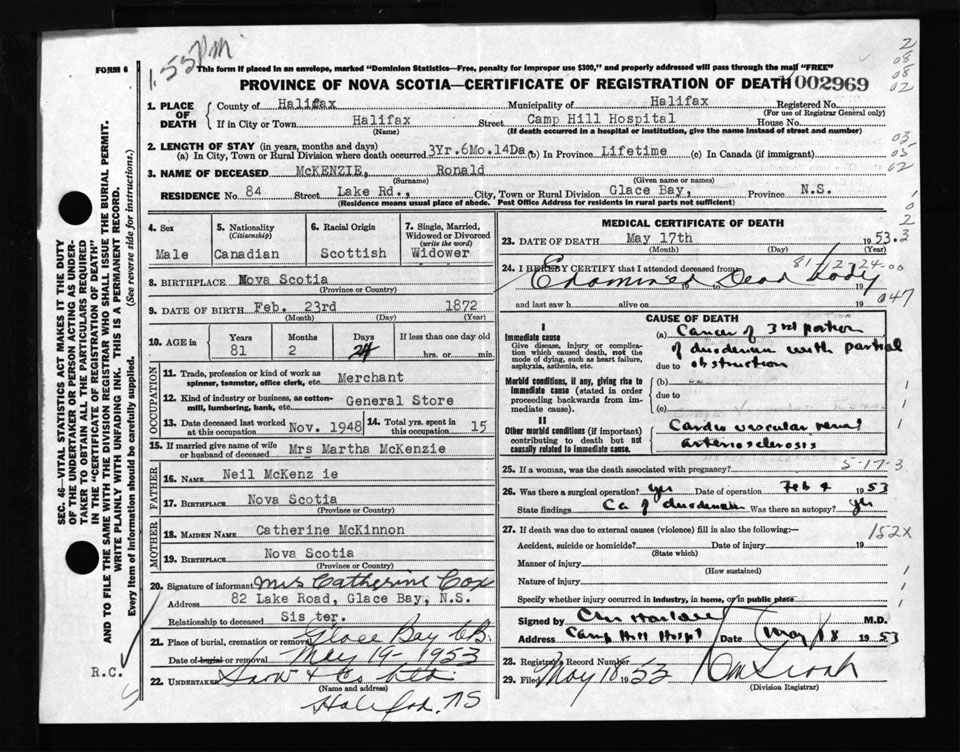 1.55 PM.
FORM 6
This form if placed in an envelope, marked "Dominion Statistics—Free, penalty for improper use $300," and properly addressed will pass through the mail "FREE"
PROVINCE OF NOVA SCOTIA—CERTIFICATE OF REGISTRATION OF DEATH
002969
2
08
08
02
1. PLACE OF DEATH
County of Halifax
Municipality of Halifax
Registered No.
(For use of Registrar General only)
If in City or Town Halifax Street Camp Hill Hospital House No.
(Name) (If death occurred in a hospital or institution, give the name instead of street and number)
2. LENGTH OF STAY (in years, months and days)
(a) In City, Town or Rural Division where death occurred 3Yr.6Mo.14Da. (b) In Province Lifetime (c) In Canada (if immigrant)
03
05
02
3. NAME OF DECEASED McKENZIE, Ronald
(Surname) (Given name or names)
RESIDENCE No. 84 Street Lake Rd., City, Town or Rural Division Glace Bay, Province N.S.
(Residence means usual place of abode. Post Office Address for residents in rural parts not sufficient)
4. Sex
Male
5. Nationality
(Citizenship)
Canadian
6. Racial Origin
Scottish
7. Single, Married, Widowed or Divorced
(write the word)
Widower
8. BIRTHPLACE Nova Scotia
(Province or Country)
9. DATE OF BIRTH Feb. 23rd 1872
(Month) (Day) (Year)
10. AGE in
Years
81
Months
2
Days
24
If less than one day old
hrs. or min.
OCCUPATION
11. Trade, profession or kind of work as spinner, teamster, office clerk, etc. Merchant
12. Kind of industry or business, as cotton-mill, lumbering, bank, etc. General Store
13. Date deceased last worked at this occupation Nov. 1948
14. Total yrs. spent in this occupation 15
15. If married give name of wife or husband of deceased Mrs Martha McKenzie
FATHER
16. NAME Neil McKenz ie
17. BIRTHPLACE Nova Scotia
(Province or Country)
MOTHER
18. MAIDEN NAME Catherine McKinnon
19. BIRTHPLACE Nova Scotia
(Province or Country)
20. Signature of informant Mrs Catherine Cox
Address 82 Lake Road, Glace Bay, N.S.
Relationship to deceased Sis ter.
21. Place of burial, cremation or removal Glace Bay CB.
Date of burial or removal May 19-1953
22. UNDERTAKER Snow & Co Ltd.
(Name and address)
Halifax, NS
MEDICAL CERTIFICATE OF DEATH
23. DATE OF DEATH May 17th 1953
(Month) (Day) (Year)
24. I HEREBY CERTIFY that I attended deceased from
Examined Dead body
to 19
and last saw h alive on 19
047
CAUSE OF DEATH
I
Immediate cause
Give disease, injury or complication which caused death, not the mode of dying, such as heart failure, asphyxia, asthenia, etc.
(a) Cancer of 3rd portion
of duodenum with partial
due to obstruction
Morbid conditions, if any, giving rise to immediate cause (stated in order proceeding backwards from immediate cause).
(b)
due to
(c)
II
Other morbid conditions (if important) contributing to death but not causally related to immediate cause.
Cardio vascular renal
arteriosclerosis
25. If a woman, was the death associated with pregnancy?
5-17-3
26. Was there a surgical operation? yes Date of operation Feb 4 1953
State findings Ca of duodenum Was there an autopsy? yes
27. If death was due to external causes (violence) fill in also the following:—
152X
Accident, suicide or homicide? Date of injury 19
(State which)
Manner of injury
(How sustained)
Nature of injury
Specify whether injury occurred in industry, in home, or in public place
Signed by M.D.
Address Camp Hill Hospt Date May 18 1953
28. Registrar's Record Number
29. Filed May 18 1953
(Division Registrar)
SEC. 46—VITAL STATISTICS ACT MAKES IT THE DUTY
OF THE UNDERTAKER OR PERSON ACTING AS UNDERTAKER TO OBTAIN ALL THE PARTICULARS REQUIRED
IN THE "CERTIFICATE OF REGISTRATION OF DEATH"
AND TO FILE THE SAME WITH THE DIVISION REGISTRAR WHO SHALL ISSUE THE BURIAL PERMIT.
WRITE PLAINLY WITH UNFADING INK. THIS IS A PERMANENT RECORD.
Every item of information should be carefully supplied. (See reverse side for instructions.)
R.C.